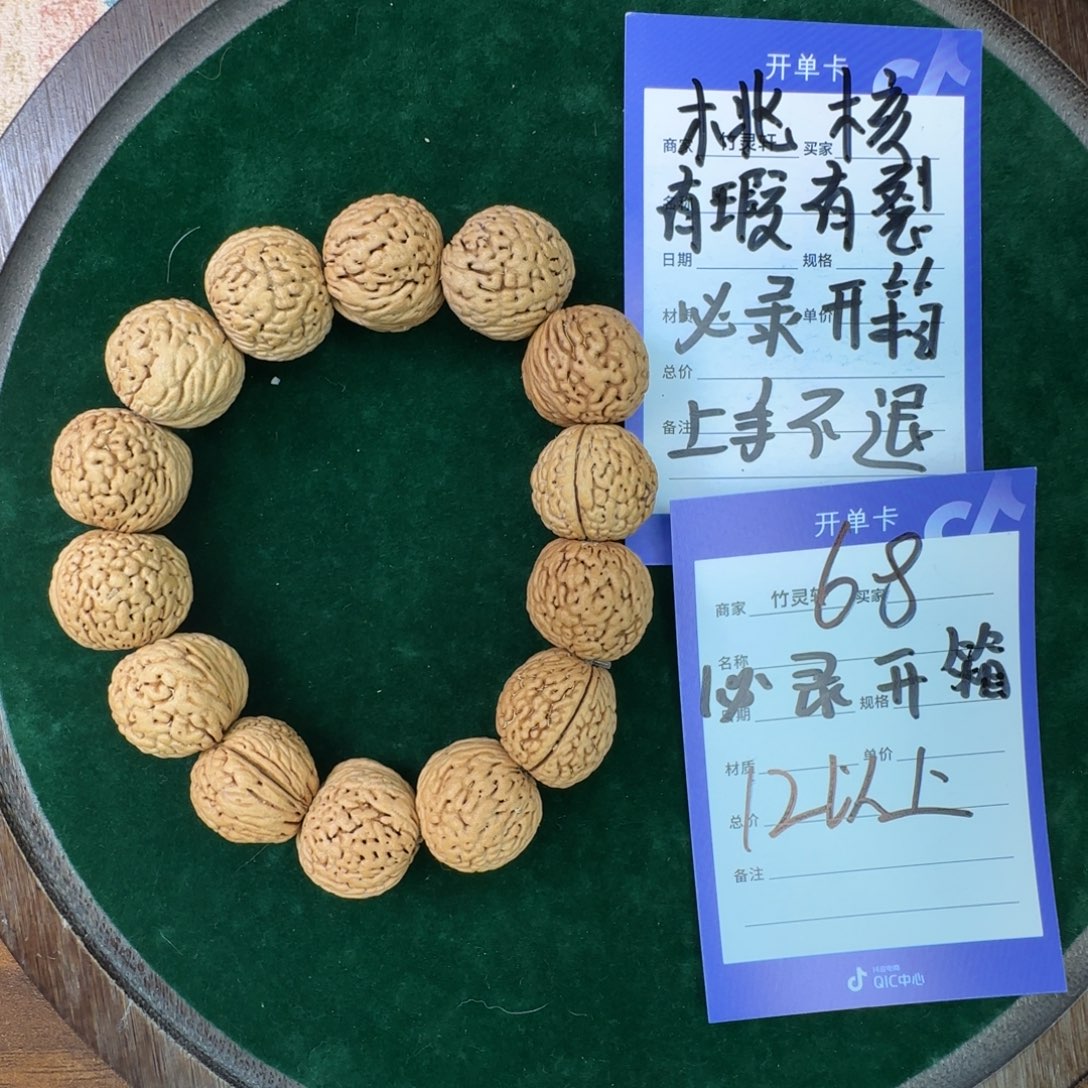 开单卡
桃核
商家 竹灵轩 买家
有瑕有裂
名称
日期 规格
必录开箱
材质 单价
总价
上手不退
备注
开单卡
68
商家 竹灵轩 买家
名称
必录开箱
日期 规格
材质 单价
12以上
总价
备注
抖音电商
QIC中心